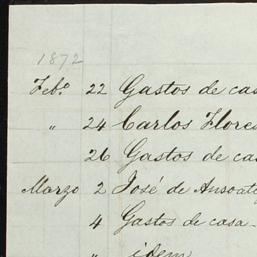 1872
Feb.º 22 Gastos de cas
" 24 Carlos Flores
26 Gastos de ca
Marzo 2 José de Ansoate
4 Gastos de casa
" idem